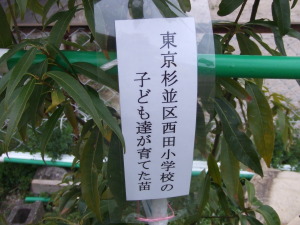 東京杉並区西田小学校の
子ども達が育てた苗